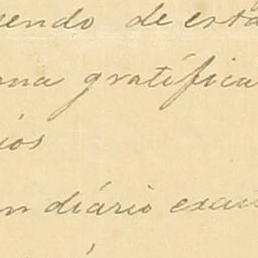 endo de esta
ma gratifica
ios
m diário exa